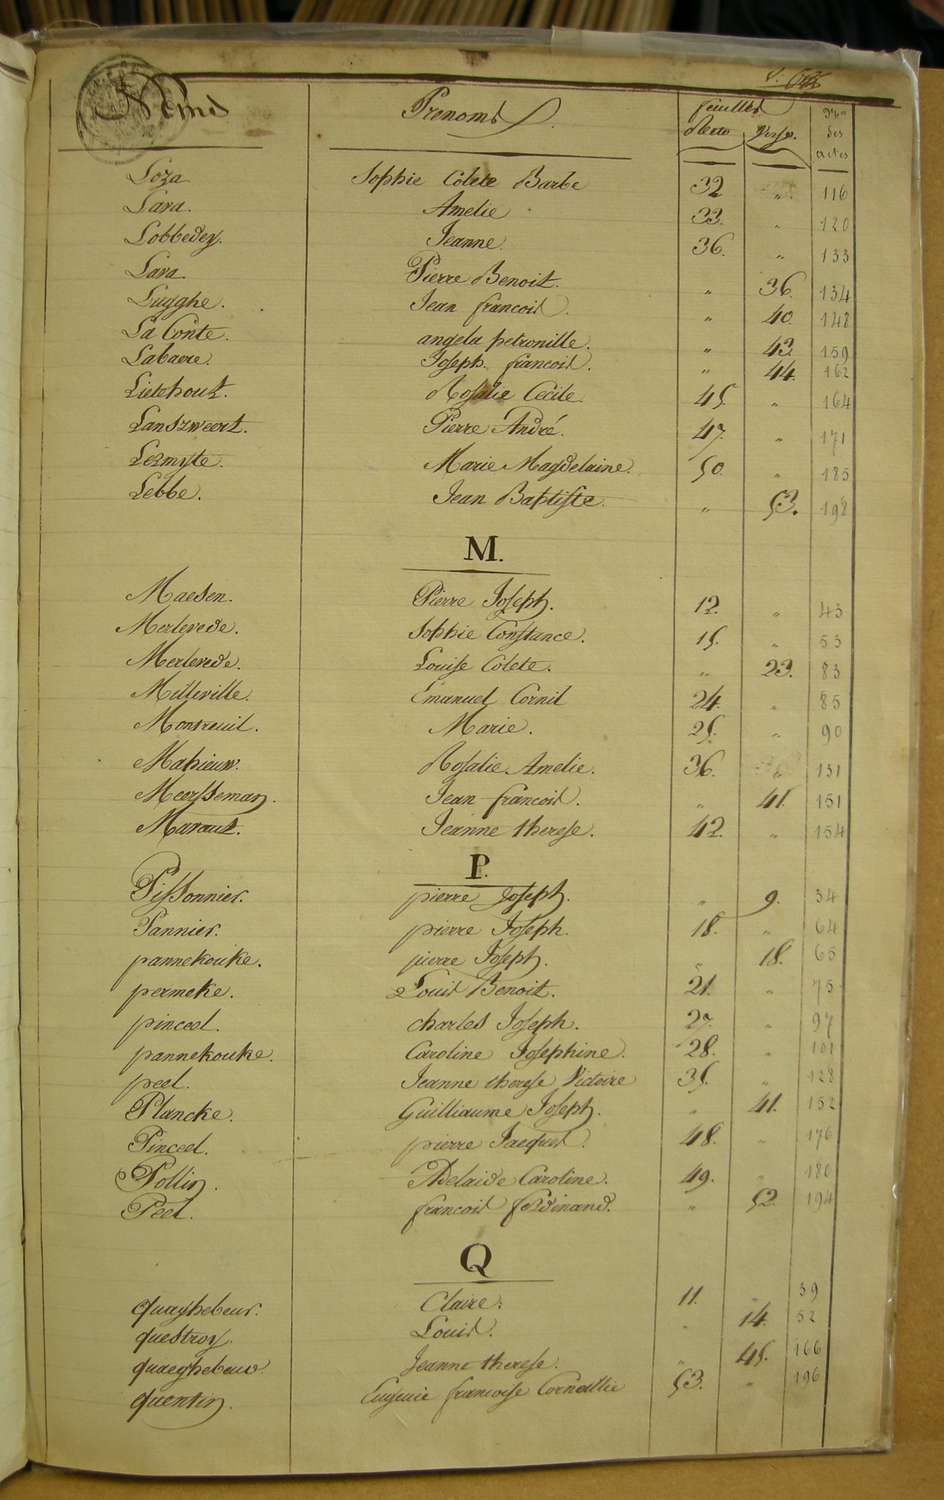 Noms Prenoms feuilles Nos
Recto Verso. des
actes
Loza Sophie Colete Barbe 32 " 116
Lara. Amelie 33. " 120
Lobbedey. Jeanne. 36. " 133
Lara Pierre Benoit. " 36. 134
Luyghe. Jean francois. " 40. 148
La Conte. angela petronille. " 43. 159
Labaere. Joseph francois. " 44. 162
Lietehout. Rosalie Cecile 45. " 164
Lanszweert. Pierre André. 47. " 171
Lermyte. Marie Magdelaine. 50. " 185
Lebbe. Jean Baptiste. " 53. 198
M.
Maesen. Pierre Joseph. 12. " 43
Merlevede. Sophie Constance. 15. " 53
Merlevede. Louise Colete. " 23. 83
Milleville. Emanuel Cornil 24. " 85
Monsreuil. Marie. 25. " 90
Mahieuw. Rosalie Amelie. 36. " 131
Meersseman. Jean francois. " 41. 151
Marout. Jeanne therese. 42. " 154
P.
Pissonnier. pierre Joseph. " 9. 34
Pannier. pierre Joseph. 18. " 64
pannekouke. pierre Joseph. " 18. 65
permeke. Louis Benoit. 21. " 75
pinceel. charles Joseph. 27. " 97
pannekouke. Caroline Josephine. 28. " 101
peel. Jeanne therese Victoire 35. " 128
Plancke. Guilliaume Joseph. " 41. 152
Pinceel. pierre Jacques. 48. " 176
Pollin. Adelaide Caroline. 49. " 180
Peel. francois ferdinand. " 52. 194
Q
quaeghebeur. Claire. 11. " 39
questroy. Louis. " 14. 52
quaeghebeur Jeanne therese. " 45. 166
quentin. Eugenie francoise Corneillie 53. " 196